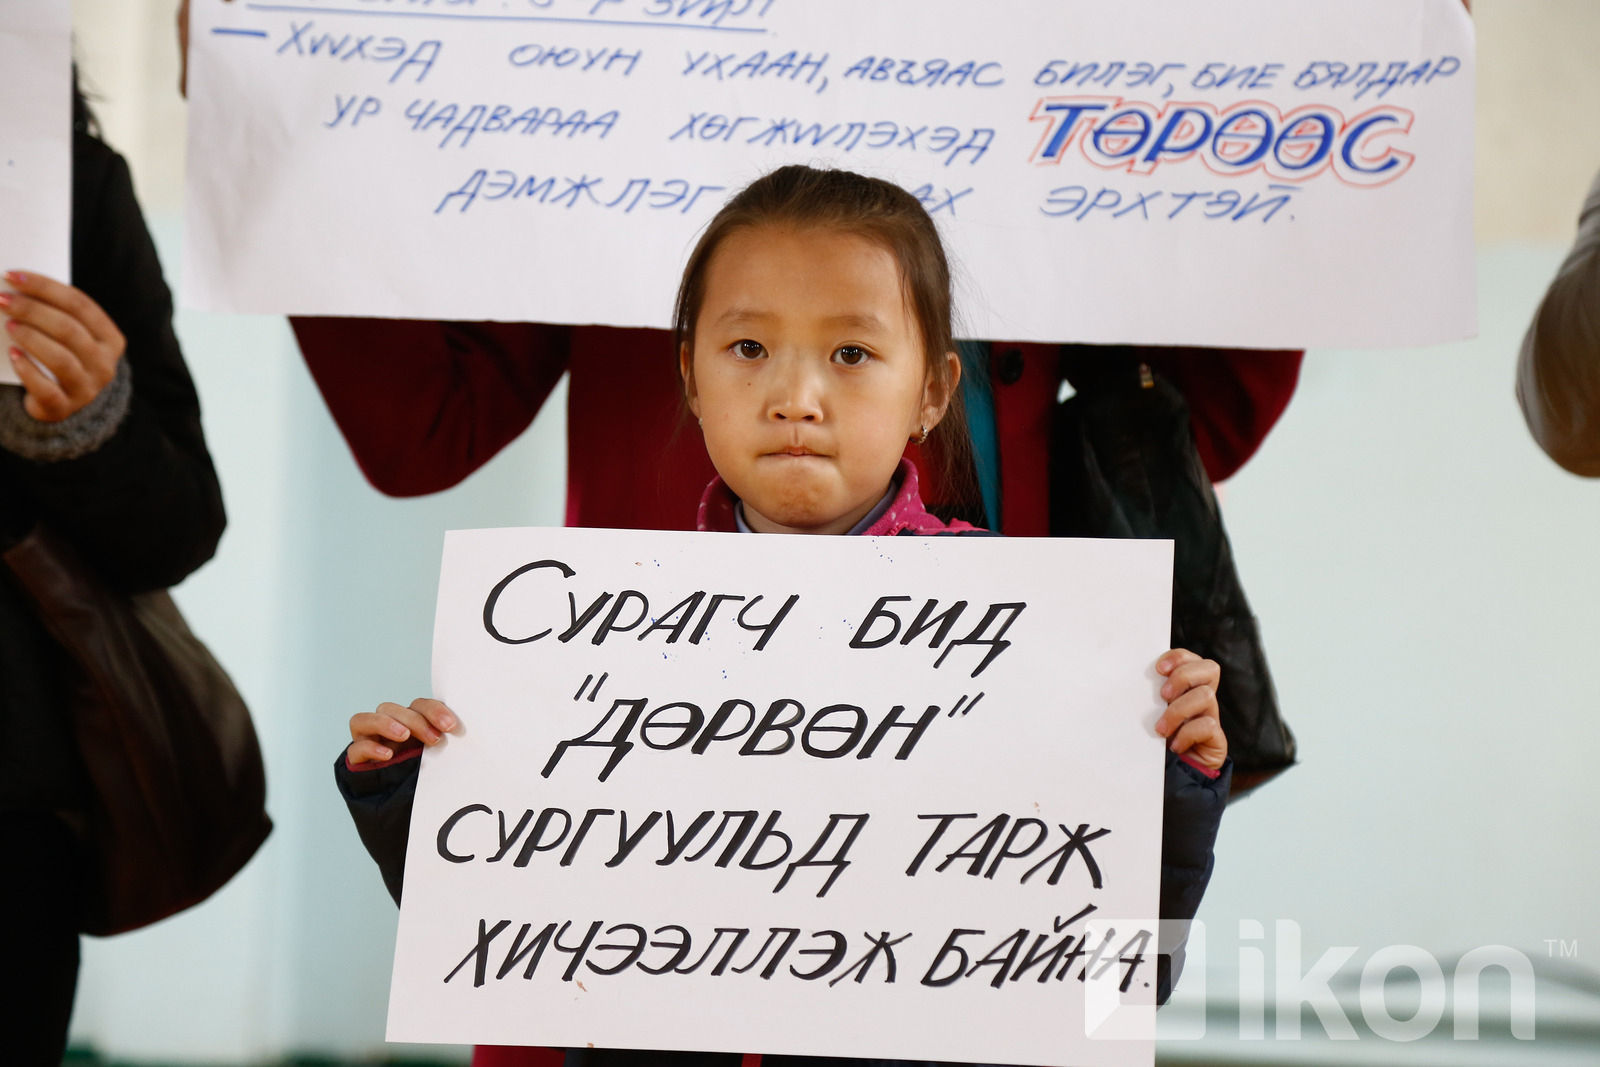 — ХҮҮХЭД ОЮУН УХААН, АВЪЯАС БИЛЭГ, БИЕ БЯЛДАР
УР ЧАДВАРАА ХӨГЖҮҮЛЭХЭД ТӨРӨӨС
ДЭМЖЛЭГ ЭРХТЭЙ.
СУРАГЧ БИД
"ДӨРВӨН"
СУРГУУЛЬД ТАРЖ
ХИЧЭЭЛЛЭЖ БАЙНА.
ikon™